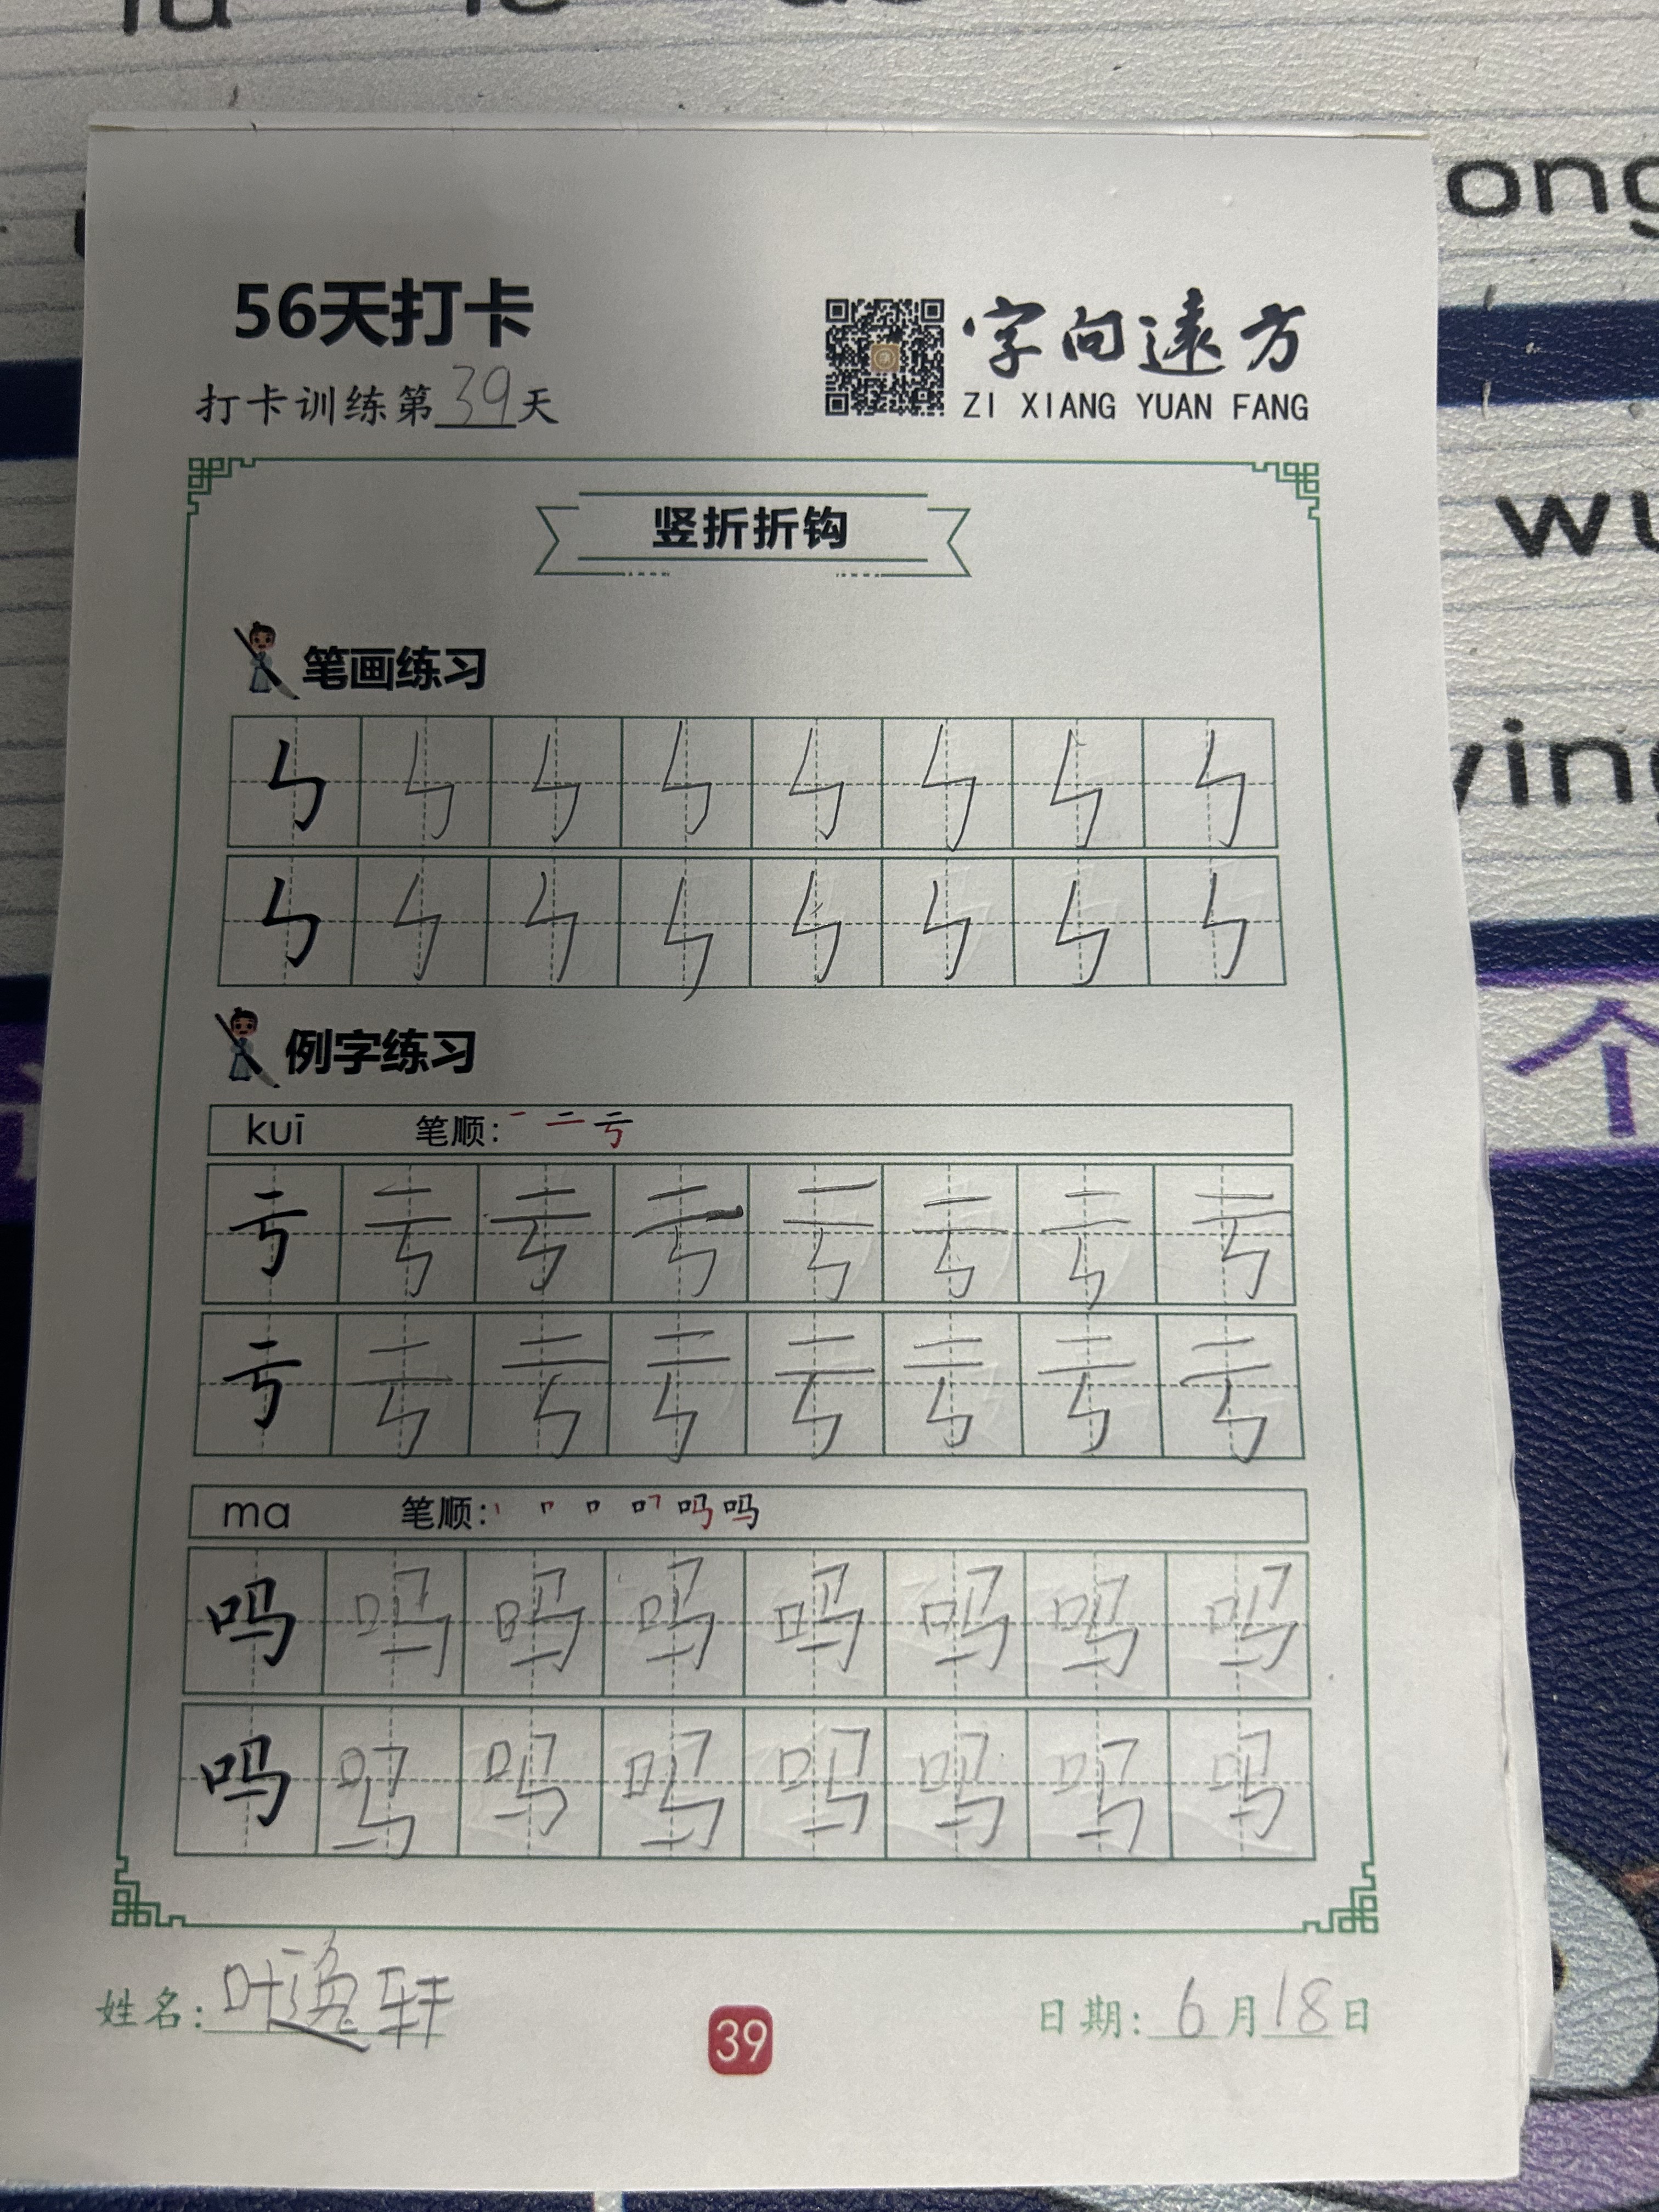 56天打卡
打卡训练第39天
字向遠方
ZI XIANG YUAN FANG
竖折折钩
笔画练习
㇉ ㇉ ㇉ ㇉ ㇉ ㇉ ㇉ ㇉
㇉ ㇉ ㇉ ㇉ ㇉ ㇉ ㇉ ㇉
例字练习
kuī 笔顺: 一 二 亏
亏 亏 亏 亏 亏 亏 亏 亏
亏 亏 亏 亏 亏 亏 亏 亏
ma 笔顺:
吗 吗 吗 吗 吗 吗 吗 吗
吗 吗 吗 吗 吗 吗 吗 吗
姓名: 叶逸轩
39
日期: 6月18日
ong
wu
ying
个